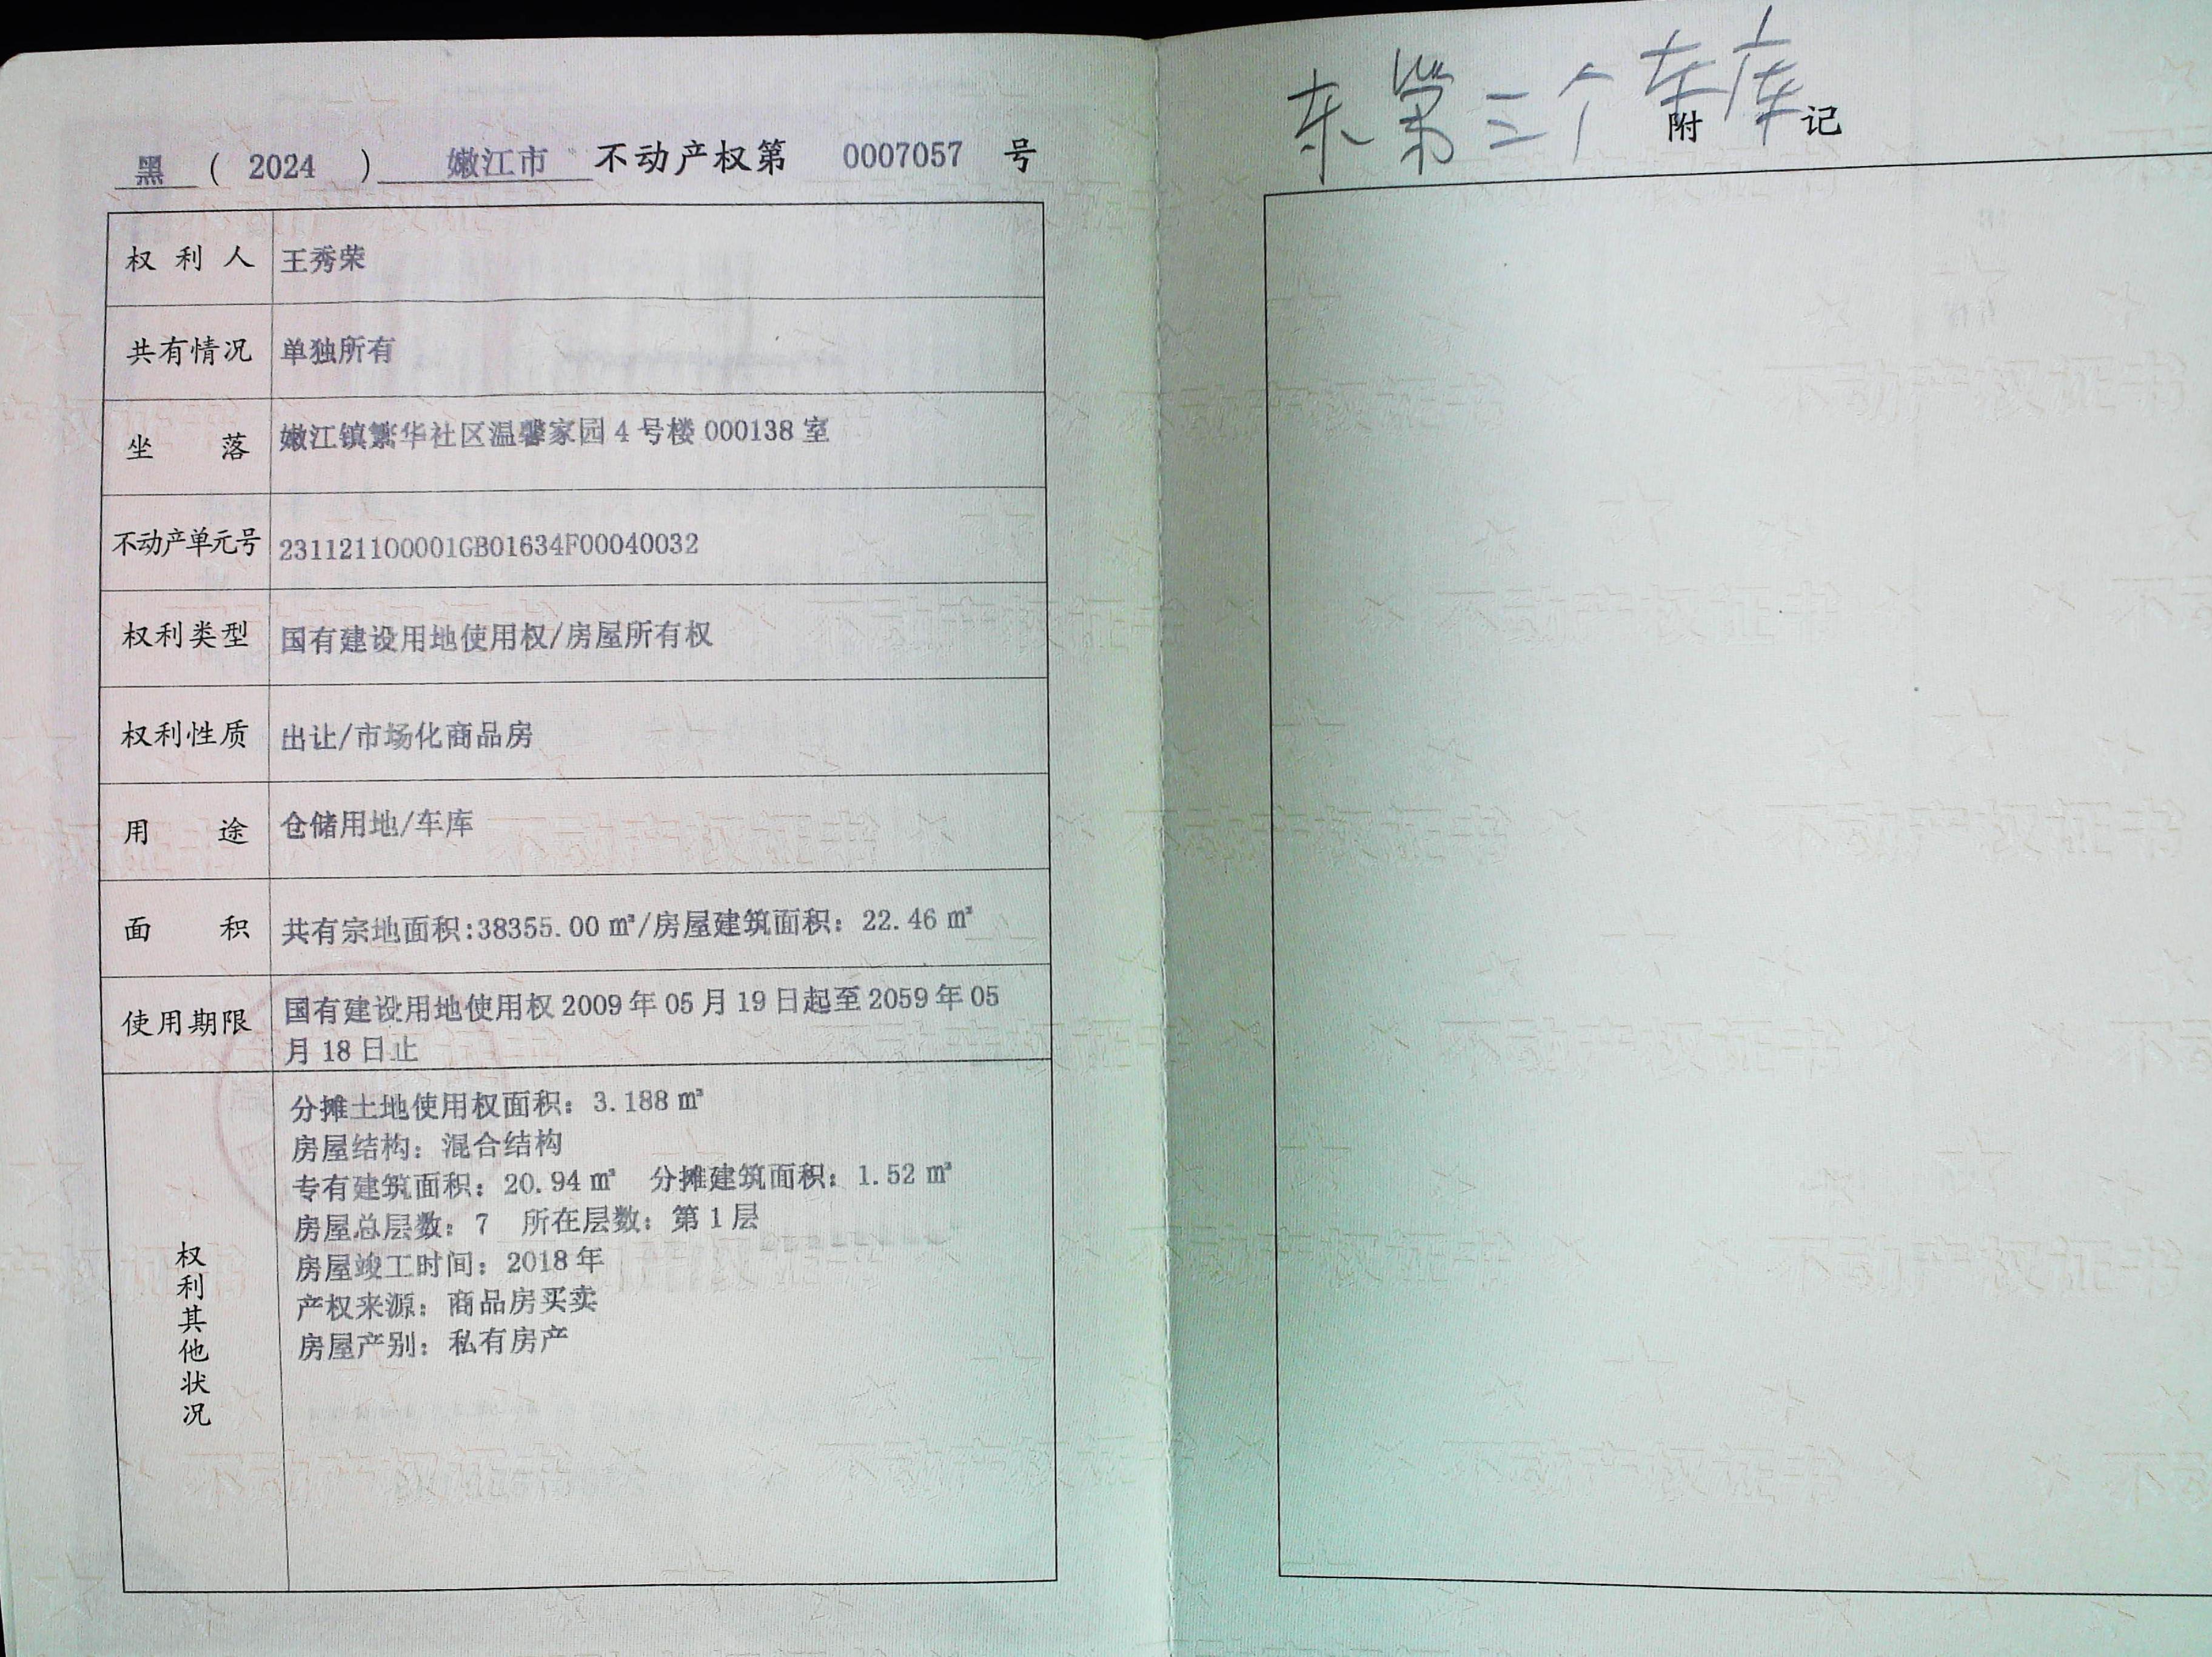 黑 ( 2024 ) 嫩江市 不动产权第 0007057 号
权利人 王秀荣
共有情况 单独所有
坐落 嫩江镇繁华社区温馨家园 4 号楼 000138 室
不动产单元号 231121100001GB01634F00040032
权利类型 国有建设用地使用权/房屋所有权
权利性质 出让/市场化商品房
用途 仓储用地/车库
面积 共有宗地面积:38355.00 ㎡/房屋建筑面积: 22.46 ㎡
使用期限 国有建设用地使用权 2009 年 05 月 19 日起至 2059 年 05
月 18 日止
权利其他状况
分摊土地使用权面积: 3.188 ㎡
房屋结构: 混合结构
专有建筑面积: 20.94 ㎡ 分摊建筑面积: 1.52 ㎡
房屋总层数: 7 所在层数: 第 1 层
房屋竣工时间: 2018 年
产权来源: 商品房买卖
房屋产别: 私有房产
东第三个车库
附记